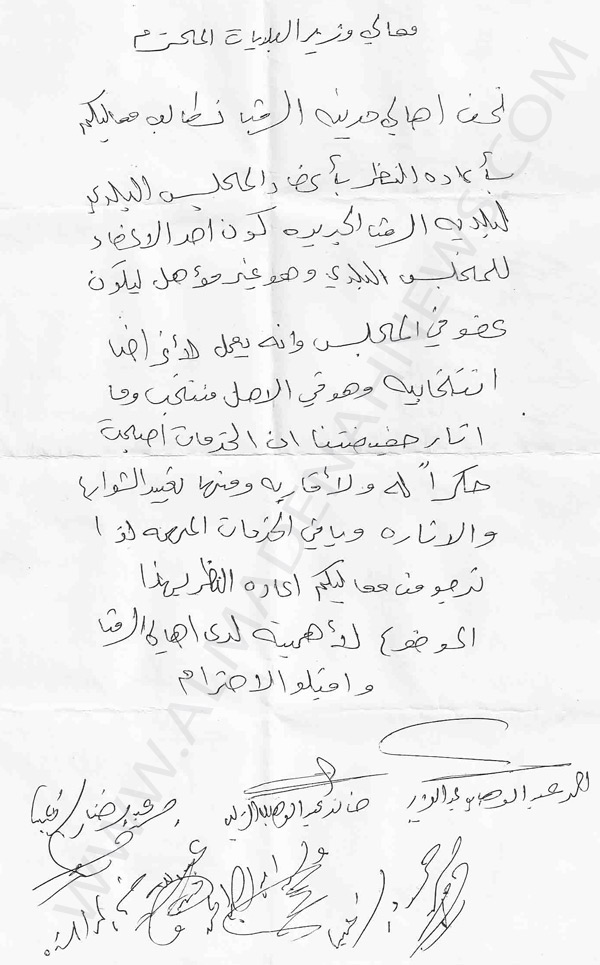 معالي وزير البلديات المحترم
نحن اهالي مدينة الرقتا نطالب معاليكم
بأعاده النظر بأعضاء المجلس البلدي
لبلديه الرقتا الجديده كون احد الاعضاء
للمجلس البلدي وهو غير مؤهل ليكون
عضو في المجلس وانه يعمل لأغراضا
انتخابيه وهو في الاصل منتخب وما
اثار حفيضتنا ان الخدمات اصبحت
حكراً له ولأقاربه ومنها تعبيد الشوارع
والاناره وباقي الخدمات المهمه لذا
نرجو من معاليكم اعاده النظر بهذا
الموضوع لأهميته لدى اهالي الرقتا
واقبلو الاحترام
عبدالوهاب
عبدالوهاب
WWW.ALMADENAHNEWS.COM